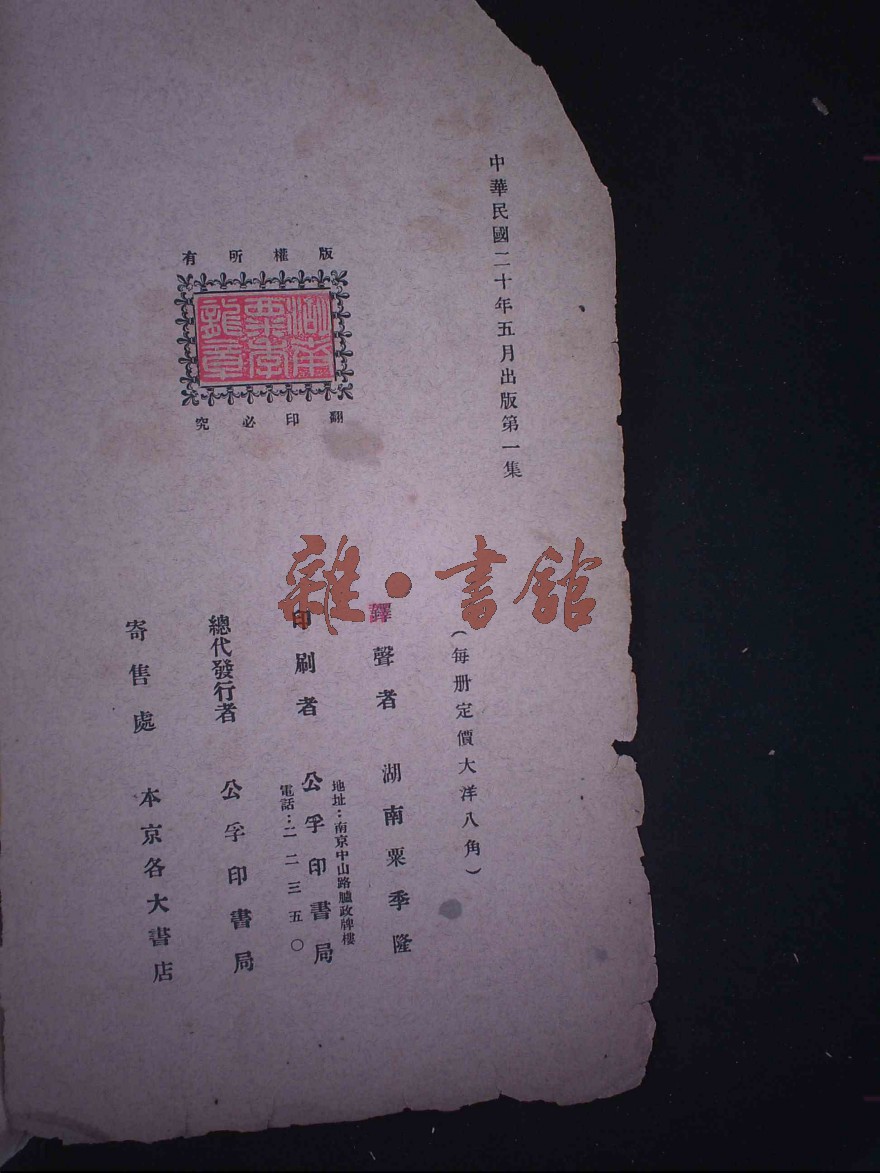 中華民國二十年五月出版第一集
(每册定價大洋八角)
版權所有
翻印必究
譯聲者 湖南粟季隆
印刷者 公孚印書局
地址：南京中山路臚政牌樓
電話：二二三五〇
總代發行者 公孚印書局
寄售處 本京各大書店
雜·書館